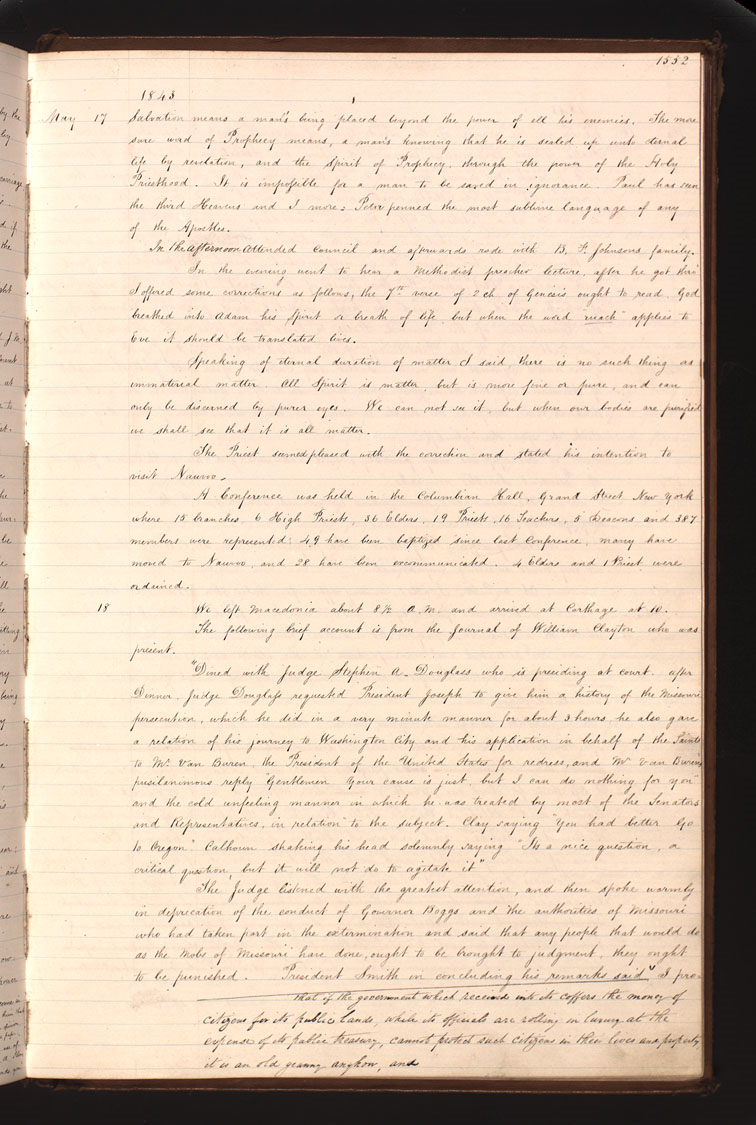 1552
1843
May 17 Salvation means a man's being placed beyond the power of all his enemies. The more
sure word of Prophecy means, a man's knowing that he is sealed up unto eternal
life by revelation, and the spirit of Prophecy, through the power of the Holy
Priesthood. It is impossible for a man to be saved in ignorance. Paul has seen
the third Heavens and I more; Peter penned the most sublime language of any
of the Apostles.
In the afternoon attended council and afterwards rode with B. F. Johnsons family.
In the evening went to hear a Methodist preacher lecture, after he got thro'
I offered some corrections as follows, the 7th verse of 2 ch of Genesis ought to read God
breathed into Adam his Spirit or breath of life but when the word "ruach" applies to
Eve it should be translated lives.
Speaking of eternal duration of matter I said, there is no such thing as
immaterial matter. All Spirit is matter, but is more fine or pure, and can
only be discerned by purer eyes. We can not see it, but when our bodies are purified
we shall see that it is all matter.
The Priest seemed pleased with the correction and stated his intention to
visit Nauvoo.
A Conference was held in the Columbian Hall, Grand Street New York
where 15 branches, 6 High Priests, 36 Elders, 19 Priests, 16 Teachers, 5 Deacons and 387
members were represented; 49 have been baptized since last Conference, many have
moved to Nauvoo, and 28 have been excommunicated. 4 Elders and 1 Priest were
ordained.
18 We left Macedonia about 8½ A.M. and arrived at Carthage at 10.
The following brief account is from the Journal of William Clayton who was
present.
"Dined with Judge Stephen A. Douglass who is presiding at court. after
Dinner Judge Douglass requested President Joseph to give him a history of the Missouri
persecution, which he did in a very minute manner for about 3 hours he also gave
a relation of his journey to Washington City and his application in behalf of the Saints
to Mr Van Buren, the President of the United States for redress, and Mr Van Burens
pusilanimous reply "Gentlemen your cause is just, but I can do nothing for you"
and the cold unfeeling manner in which he was treated by most of the Senators
and Representatives, in relation to the subject. Clay saying "You had better Go
to Oregon" Calhoun shaking his head solemnly saying "Its a nice question, a
critical question, but it will not do to agitate it"
The Judge listened with the greatest attention, and then spoke warmly
in deprecation of the conduct of Governor Boggs and the authorities of Missouri
who had taken part in the extermination and said that any people that would do
as the mobs of Missouri have done, ought to be brought to judgment, they ought
to be punished. President Smith in concluding his remarks said" I pro-
that if the government which received into its coffers the money of
citizens for its public lands, while its officials are rolling in luxury at the
expense of its public treasury, cannot protect such citizens in their lives and property
it is an old granny anyhow, and